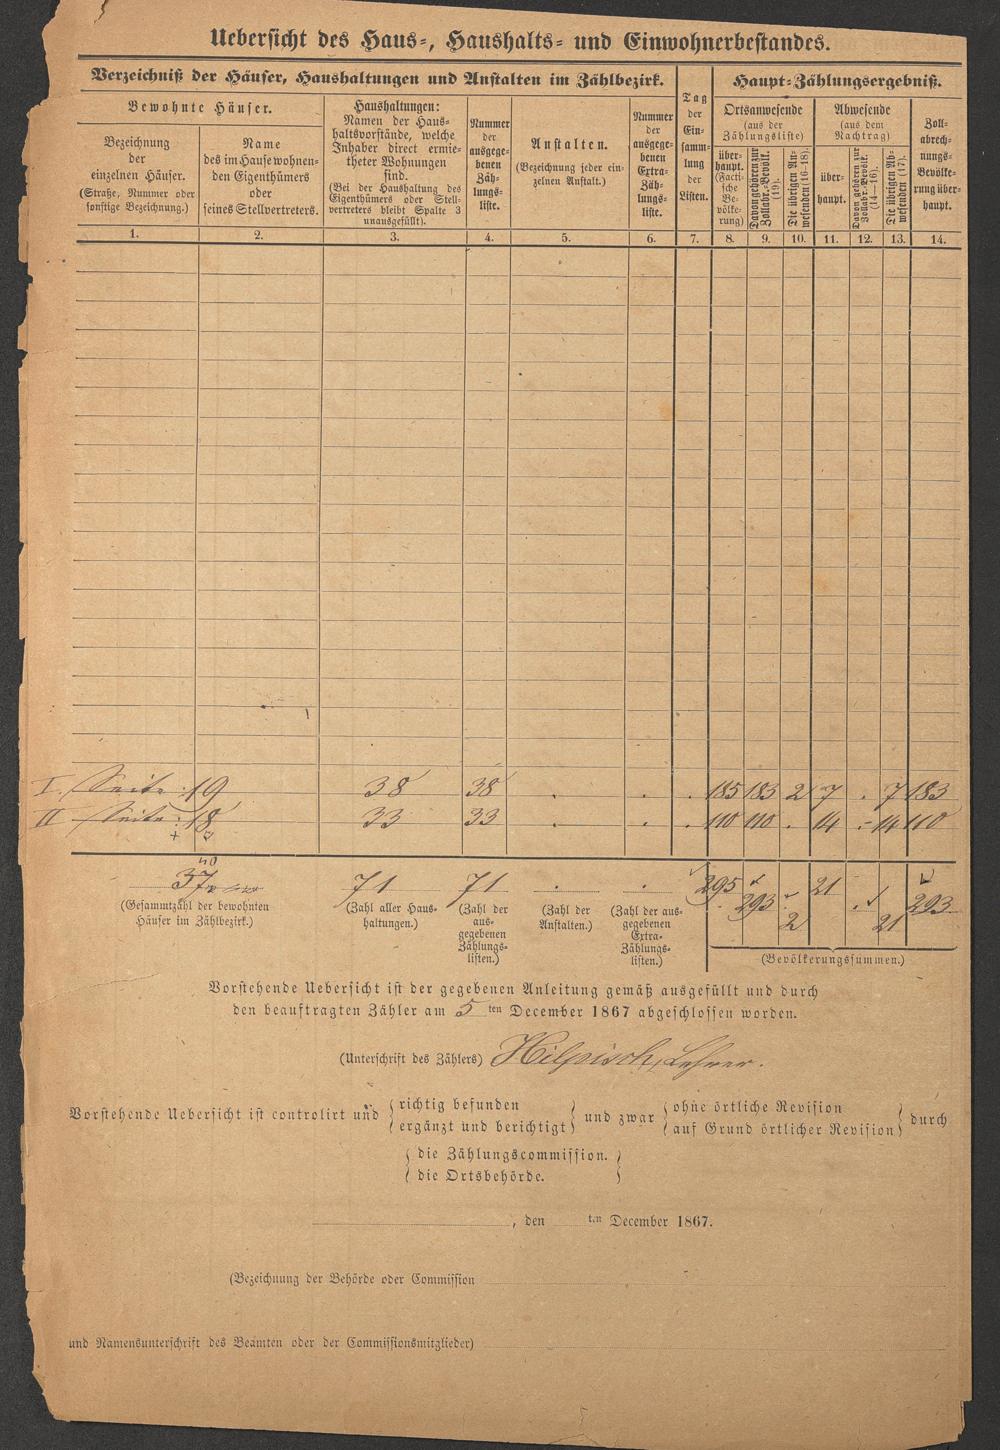 Uebersicht des Haus-, Haushalts- und Einwohnerbestandes.
Verzeichniß der Häuser, Haushaltungen und Anstalten im Zählbezirk.
Bewohnte Häuser.
Bezeichnung
der
einzelnen Häuser.
(Straße, Nummer oder
sonstige Bezeichnung.)
Name
des im Hause wohnen-
den Eigenthümers
oder
seines Stellvertreters.
Haushaltungen:
Namen der Haus-
haltsvorstände, welche
Inhaber direct ermie-
theter Wohnungen
sind.
(Bei der Haushaltung des
Eigenthümers oder Stell-
vertreters bleibt Spalte 3
unausgefüllt).
Nummer
der
ausgege-
benen
Zäh-
lungs-
liste.
Anstalten.
(Bezeichnung jeder ein-
zelnen Anstalt.)
Nummer
der
ausgege-
benen
Extra-
Zäh-
lungs-
liste.
Tag
der
Ein-
samm-
lung
der
Listen.
Haupt-Zählungsergebniß.
Ortsanwesende
(aus der
Zählungsliste)
über-
haupt.
(Facti-
sche
Be-
völke-
rung)
Davon gehören zur
Zollabr.-Bevölk.
(19).
Die übrigen An-
wesenden (16-18).
Abwesende
(aus dem
Nachtrag)
über-
haupt.
Davon gehören zur
Zollabr.-Bevölk.
(14-16).
Die übrigen Ab-
wesenden (17).
Zoll-
abrech-
nungs-
Bevölke-
rung über-
haupt.
1. 2. 3. 4. 5. 6. 7. 8. 9. 10. 11. 12. 13. 14.
I. Seite : 19 38 38 . . . 185 183 2 7 . 7 183
II Seite : 18 33 33 . . . 110 110 . 14 . 14 110
40
37 71 71 . . 295 293 2 21 . 21 293
(Gesammtzahl der bewohnten
Häuser im Zählbezirk.)
(Zahl aller Haus-
haltungen.)
(Zahl der
aus-
gegebenen
Zählungs-
listen.)
(Zahl der
Anstalten.)
(Zahl der aus-
gegebenen
Extra-
Zählungs-
listen.)
(Bevölkerungssummen.)
Vorstehende Uebersicht ist der gegebenen Anleitung gemäß ausgefüllt und durch
den beauftragten Zähler am 5 ten December 1867 abgeschlossen worden.
(Unterschrift des Zählers) Hilpisch, Lehrer.
Vorstehende Uebersicht ist controlirt und { richtig befunden
ergänzt und berichtigt } und zwar { ohne örtliche Revision
auf Grund örtlicher Revision } durch
{ die Zählungscommission.
die Ortsbehörde. }
, den ten December 1867.
(Bezeichnung der Behörde oder Commission
und Namensunterschrift des Beamten oder der Commissionsmitglieder)